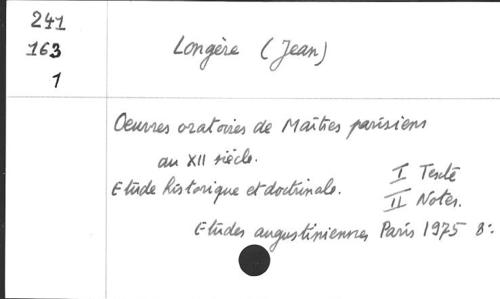 241
163
1
Longère (Jean)
Oeuvres oratoires de Maîtres parisiens
au XII siècle.
Etude historique et doctrinale.
I Texte
II Notes.
Etudes augustiniennes Paris 1975 8°.